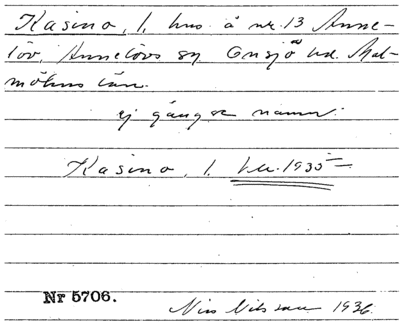 Kasino, l. hus å nr. 13 Anne-
löv, Annelövs sn Onsjö hd. Mal-
möhus län.
ej gängse namn.
Kasino, l.
Nr 5706.
Nils Nilsson 1936.